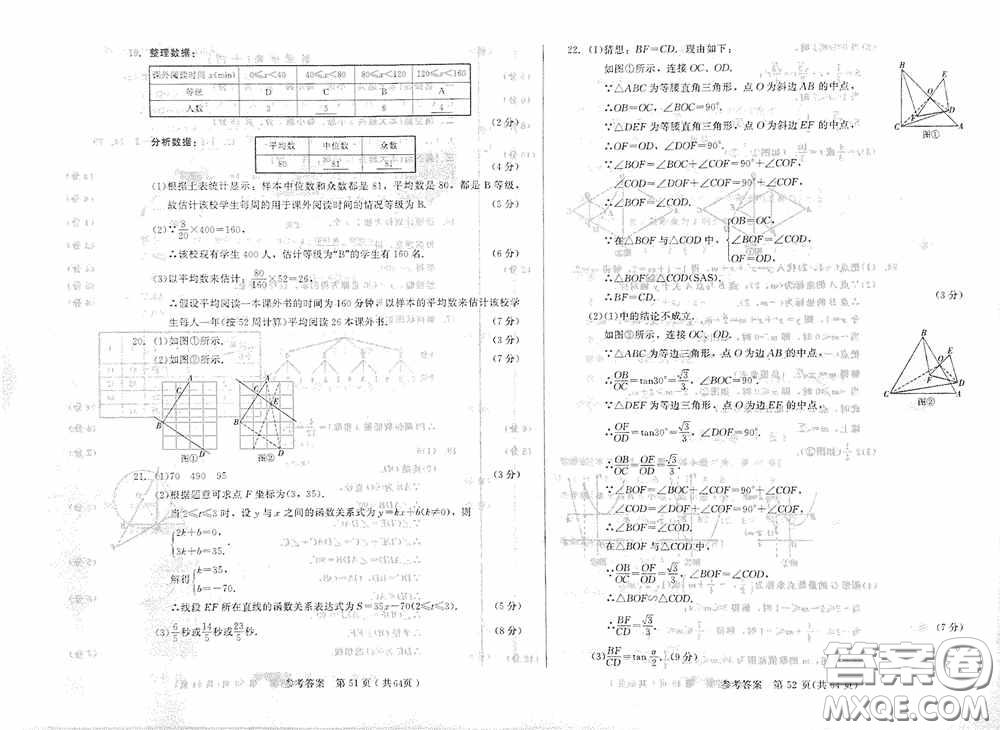 19. 整理数据:
课外阅读时间 x(min) 0≤x<40 40≤x<80 80≤x<120 120≤x<160
等级 D C B A
人数 3 5 8 4
(2分)
分析数据:
平均数 中位数 众数
80 81 81
(4分)
(1)根据上表统计显示:样本中位数和众数都是 81,平均数是 80,都是 B 等级,
故估计该校学生每周的用于课外阅读时间的情况等级为 B. (5分)
(2)∵8/20×400=160,
∴该校现有学生 400 人,估计等级为“B”的学生有 160 名. (6分)
(3)以平均数来估计:80/160×52=26,
∴假设平均阅读一本课外书的时间为 160 分钟,以样本的平均数来估计该校学
生每人一年(按 52 周计算)平均阅读 26 本课外书. (7分)
20. (1)如图①所示. (3分)
(2)如图②所示. (7分)
A C B D
图①
A C E B D
图②
21. (1)70 490 95 (3分)
(2)根据题意可求点 F 坐标为(3,35).
当 2≤t≤3 时,设 y 与 x 之间的函数关系式为 y=kx+b(k≠0),则
2k+b=0,
3k+b=35.
解得
k=35,
b=-70.
∴线段 EF 所在直线的函数关系表达式为 S=35x-70(2≤t≤3). (5分)
(3)6/5秒或14/5秒或23/5秒. (8分)
参考答案 第 51 页(共 64 页)
22. (1)猜想:BF=CD. 理由如下:
如图①所示,连接 OC、OD.
∵△ABC 为等腰直角三角形,点 O 为斜边 AB 的中点,
∴OB=OC,∠BOC=90°.
∵△DEF 为等腰直角三角形,点 O 为斜边 EF 的中点,
∴OF=OD,∠DOF=90°.
∵∠BOF=∠BOC+∠COF=90°+∠COF,
∠COD=∠DOF+∠COF=90°+∠COF,
∴∠BOF=∠COD.
∵在△BOF 与△COD 中,
OB=OC,
∠BOF=∠COD,
OF=OD,
∴△BOF≌△COD(SAS).
∴BF=CD. (3分)
B E O D F C A
图①
(2)(1)中的结论不成立.
如图②所示,连接 OC、OD.
∵△ABC 为等边三角形,点 O 为边 AB 的中点,
∴OB/OC=tan30°=√3/3,∠BOC=90°.
∵△DEF 为等边三角形,点 O 为边 EF 的中点,
∴OF/OD=tan30°=√3/3,∠DOF=90°.
∴OB/OC=OF/OD=√3/3.
∵∠BOF=∠BOC+∠COF=90°+∠COF,
∠COD=∠DOF+∠COF=90°+∠COF,
∴∠BOF=∠COD.
在△BOF 与△COD 中,
∵OB/OC=OF/OD=√3/3,∠BOF=∠COD,
∴△BOF∽△COD.
∴BF/CD=√3/3. (7分)
B E O D F C A
图②
(3)BF/CD=tan α/2. (9分)
参考答案 第 52 页(共 64 页)
答案圈
MXQE.COM